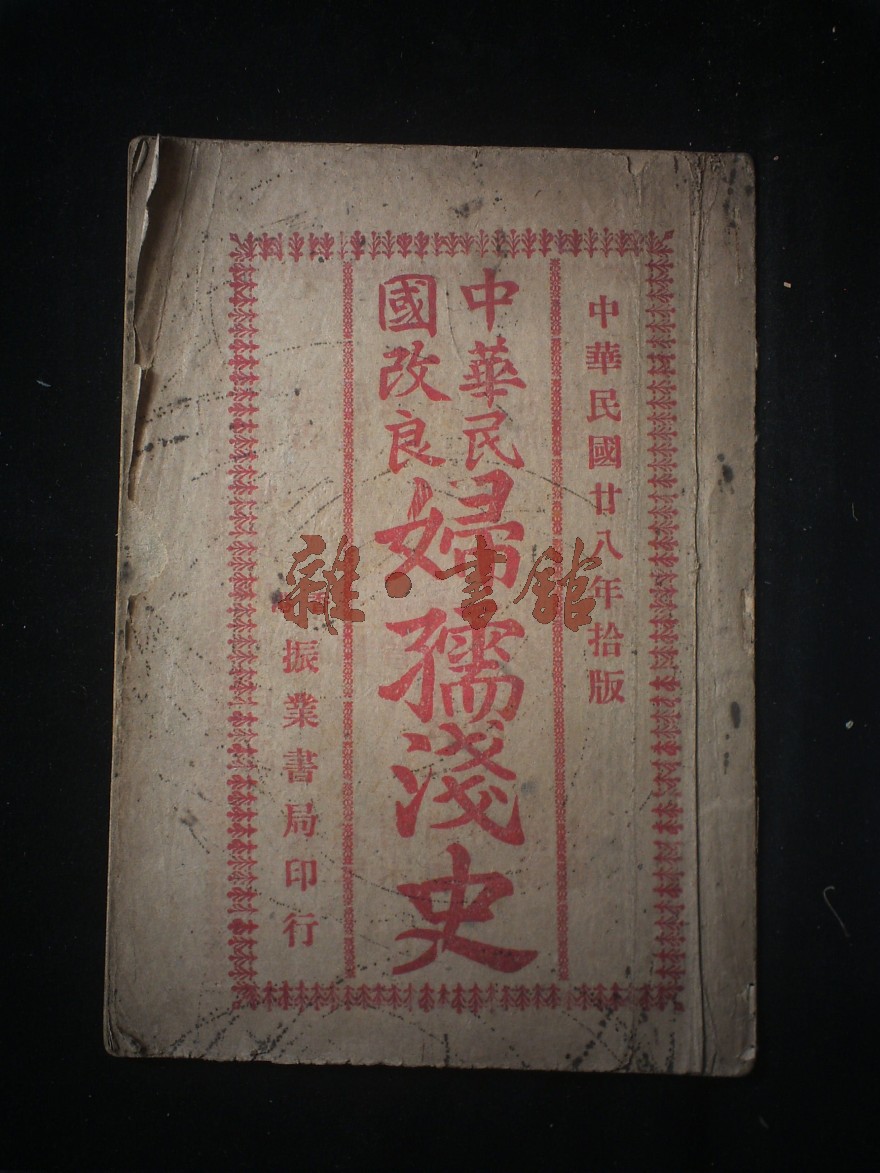 中華民國廿八年拾版
中華民
國改良
婦孺淺史
振業書局印行
雜·書館